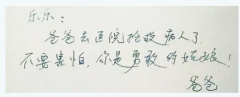 乐乐：
爸爸去医院抢救病人了，
不要害怕，你是勇敢的姑娘！
爸爸